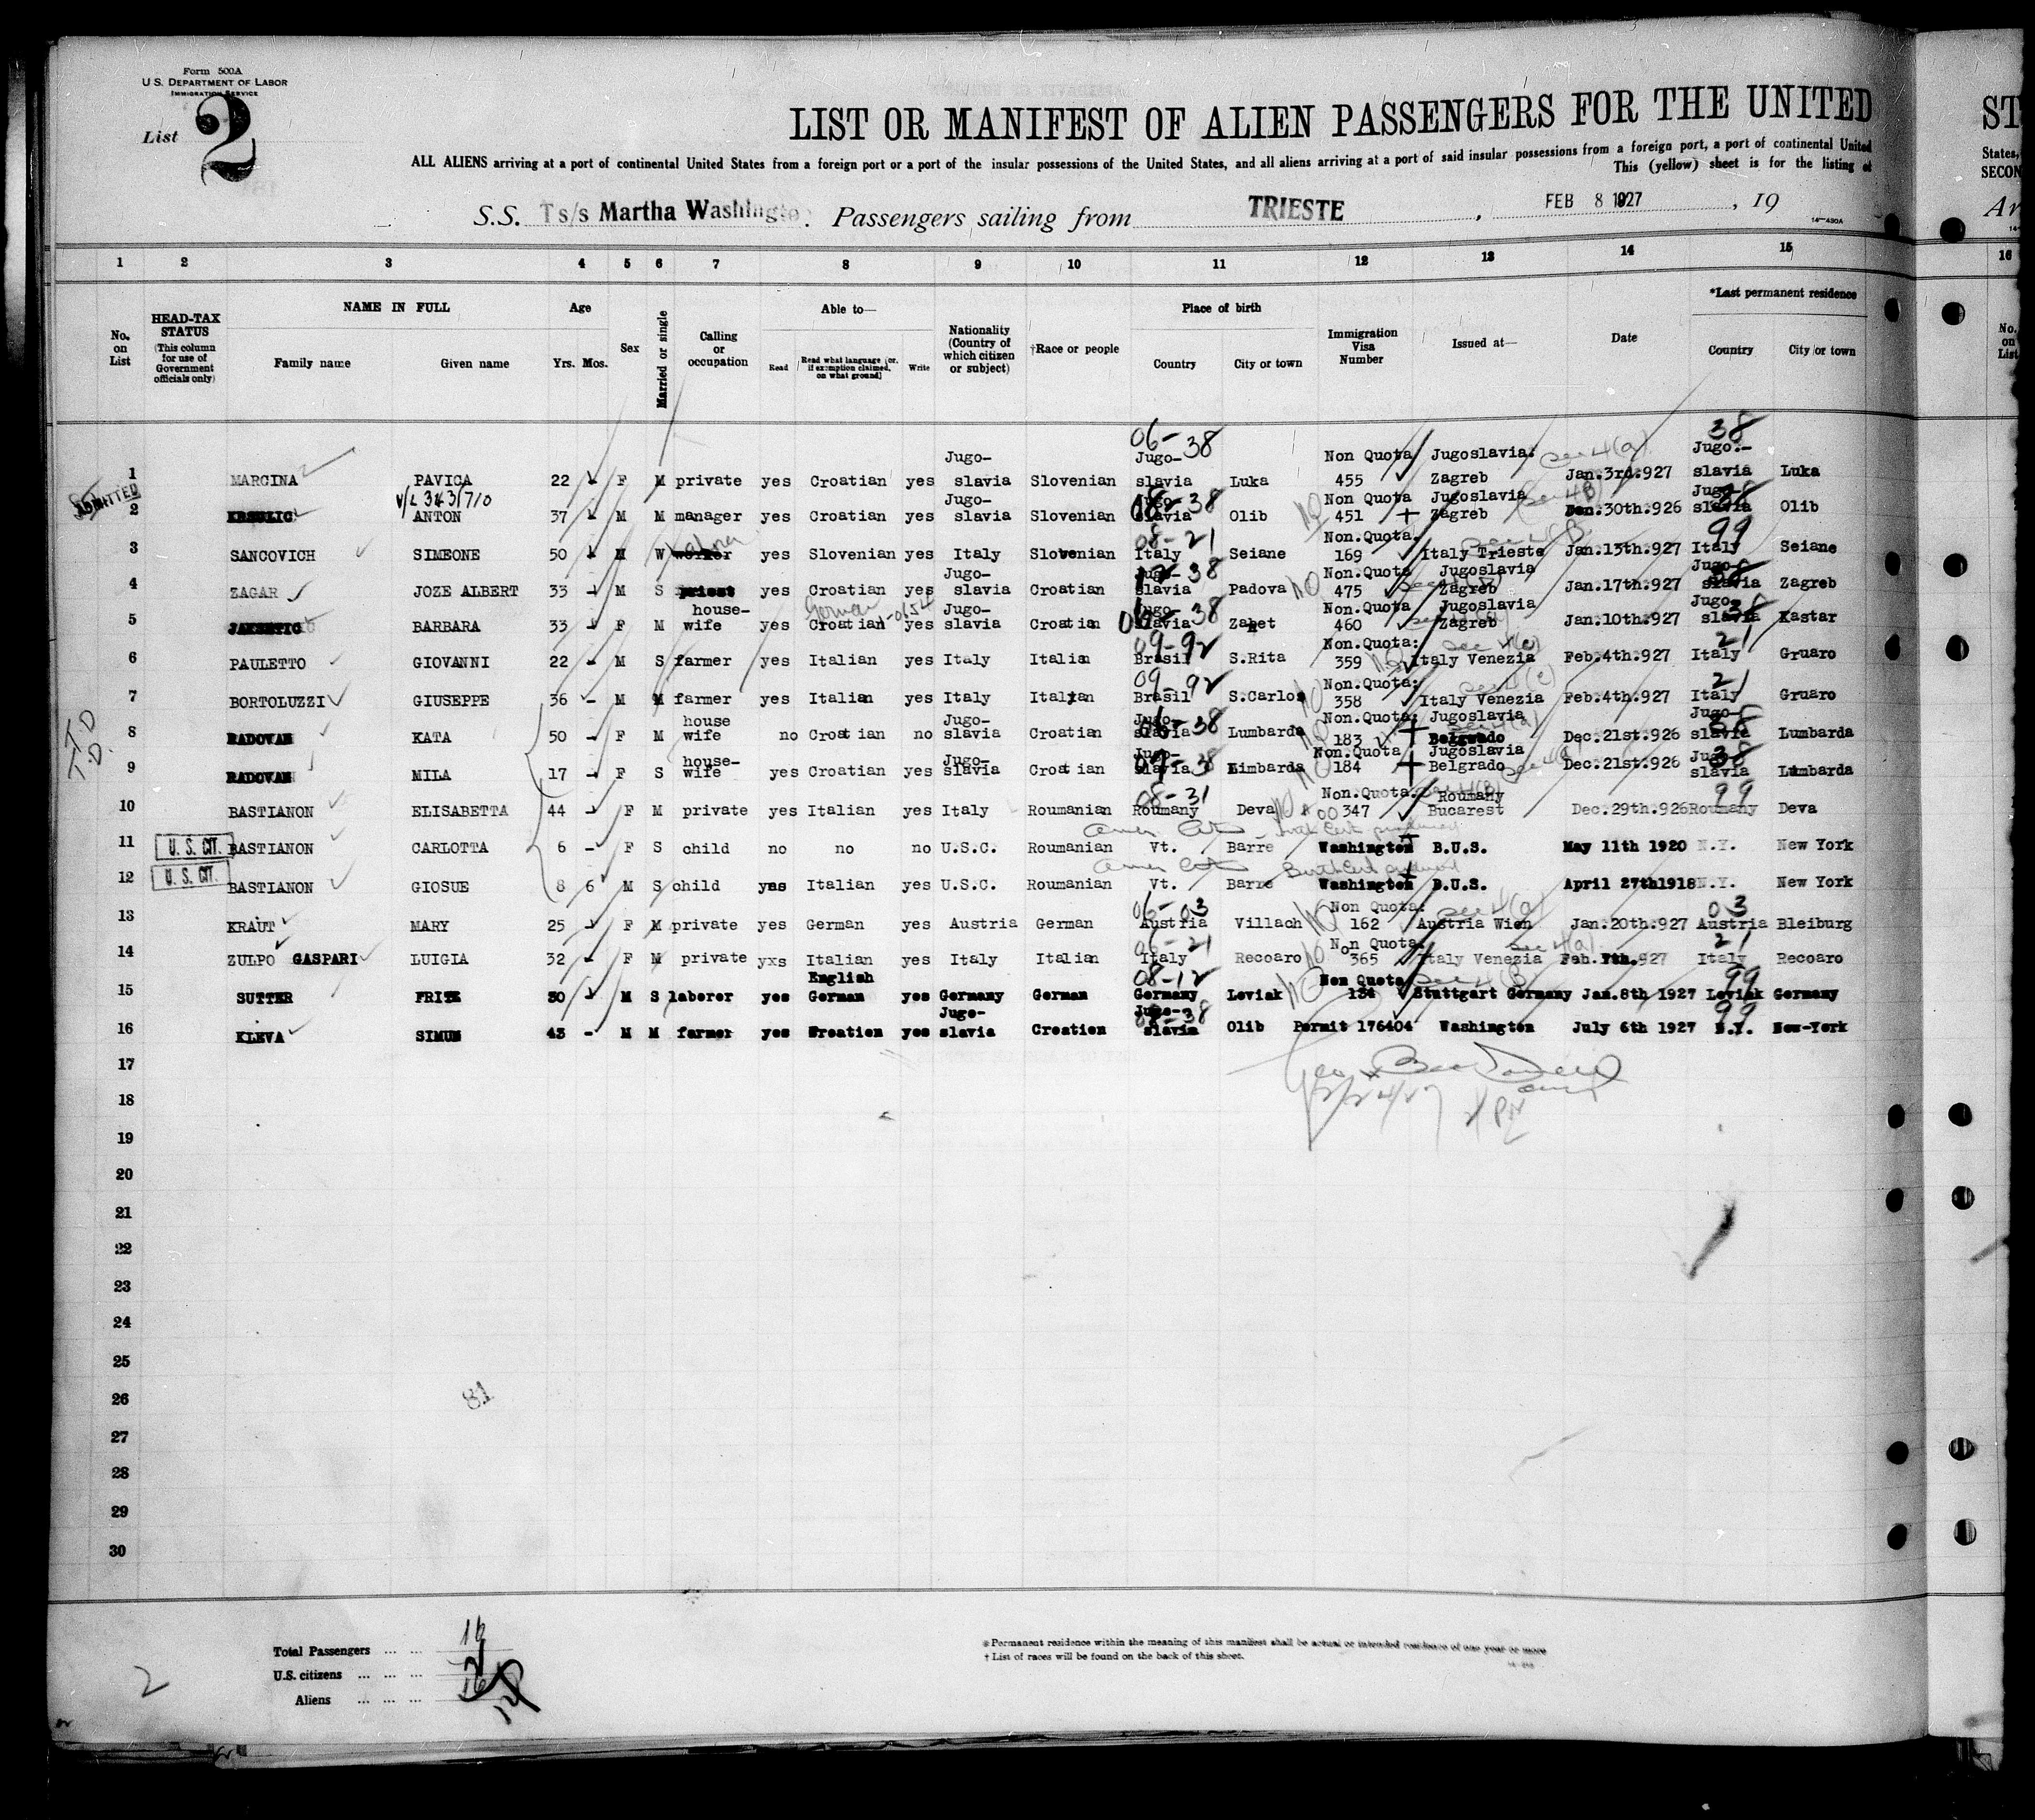 Form 500A
U.S. DEPARTMENT OF LABOR
IMMIGRATION SERVICE
List 2
LIST OR MANIFEST OF ALIEN PASSENGERS FOR THE UNITED
ALL ALIENS arriving at a port of continental United States from a foreign port or a port of the insular possessions of the United States, and all aliens arriving at a port of said insular possessions from a foreign port, a port of continental United
This (yellow) sheet is for the listing of
S.S. Ts/s Martha Washington Passengers sailing from TRIESTE, FEB 8 1927, 19
14-430A
1 2 3 4 5 6 7 8 9 10 11 12 13 14 15
No. on List
HEAD-TAX STATUS (This column for use of Government officials only)
NAME IN FULL
Family name Given name
Age
Yrs. Mos.
Sex
Married or single
Calling or occupation
Able to—
Read Read what language [or, if exemption claimed, on what ground] Write
Nationality (Country of which citizen or subject)
†Race or people
Place of birth
Country City or town
Immigration Visa Number
Issued at—
Date
*Last permanent residence
Country City or town
ADMITTED
1 MARCINA PAVICA 22 F M private yes Croatian yes Jugo-slavia Slovenian 06-38 Jugo-slavia Luka Non Quota 455 Jugoslavia: Zagreb see 4(a) Jan.3rd.927 38 Jugo.-slavia Luka
2 V/L 343/710 ANTON 37 M M manager yes Croatian yes Jugo-slavia Slovenian 08-38 slavia Olib Non Quota 451 Jugoslavia Zagreb 30th.926 38 slavia Olib
3 SANCOVICH SIMEONE 50 M W worker yes Slovenian yes Italy Slovenian 08-21 Italy Seiane Non.Quota. 169 Italy Trieste Jan.13th.927 99 Italy Seiane
4 ZAGAR JOZE ALBERT 33 M S priest yes Croatian yes Jugo-slavia Croatian 38 Jugo-slavia Padova Non.Quota 475 Jugoslavia Zagreb Jan.17th.927 Jugo-slavia Zagreb
5 BARBARA 33 F M house-wife yes Croatian German yes Jugo-slavia Croatian 38 Jugo-slavia Zamet Non.Quota 460 Jugoslavia Zagreb Jan.10th.927 Jugo-slavia Kastar
6 PAULETTO GIOVANNI 22 - M S farmer yes Italian yes Italy Italian 09-92 Brasil S.Rita Non.Quota: 359 Italy Venezia see 4(c) Feb.4th.927 21 Italy Gruaro
7 BORTOLUZZI GIUSEPPE 36 - M M farmer yes Italian yes Italy Italian 09-92 Brasil S.Carlos Non.Quota: 358 Italy Venezia Feb.4th.927 21 Italy Gruaro
T.D. 8 RADOVAN KATA 50 - F M house wife no Croatian no Jugo-slavia Croatian 38 Jugo-slavia Lumbarda Non.Quota: 183 Jugoslavia Belgrado Dec.21st.926 Jugo-slavia Lumbarda
T.D. 9 RADOVAN MILA 17 - F S house-wife yes Croatian yes Jugo-slavia Croatian 09-38 Jugo-slavia Limbarda Non.Quota 184 Jugoslavia Belgrado Dec.21st.926 38 Jugo-slavia Lumbarda
10 BASTIANON ELISABETTA 44 F M private yes Italian yes Italy Roumanian 08-31 Roumany Deva Non.Quota. 347 Roumany Bucarest Dec.29th.926 99 Roumany Deva
U.S. CIT. 11 BASTIANON CARLOTTA 6 - F S child no no no U.S.C. Roumanian Vt. Barre Washington B.U.S. May 11th 1920 N.Y. New York
U.S. CIT. 12 BASTIANON GIOSUE 8 6 M S child yes Italian yes U.S.C. Roumanian Vt. Barre Birth Cert produced Washington B.U.S. April 27th1918 N.Y. New York
13 KRAUT MARY 25 - F M private yes German yes Austria German 06-03 Austria Villach Non Quota: 162 Austria Wien see 4(a) Jan.20th.927 03 Austria Bleiburg
14 ZULPO GASPARI LUIGIA 32 F M private yxs Italian yes Italy Italian 06-21 Italy Recoaro Non Quota. 365 Italy Venezia see 4(a) Feb. 7th.927 21 Italy Recoaro
15 SUTTER FRITZ 30 M S laborer yes English German yes Germany German 08-12 Germany Leviak Non Quota 134 Stuttgart Germany Jan.8th 1927 99 Leviak Germany
16 KLEVA SIMUN 43 - M M farmer yes Croatien yes Jugo-slavia Croatien 08-38 Jugo-slavia Olib Permit 176404 Washington July 6th 1927 99 N.Y. New-York
17
18
19
20
21
22
23
24
25
26
27
28
29
30
2/24/27
81
Total Passengers ... ... 16
U.S. citizens ... ... ... 2
Aliens ... ... ...
2
*Permanent residence within the meaning of this manifest shall be actual or intended residence of one year or more
† List of races will be found on the back of this sheet.
ST
States,
SECON
Ar
16
No. on List